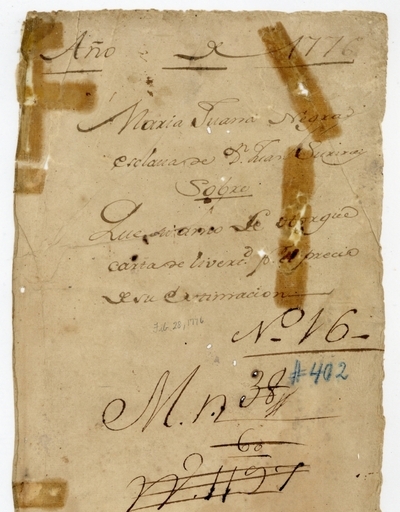 Año de 1776
Maria Juana Negra
esclava de Dn. Juan
Sobre
Que su amo le otorgue
carta de livertd. pr. el precio
de su estimacion
Feb. 28, 1776
No. 16
#402
M. n 38
60
No. 1197